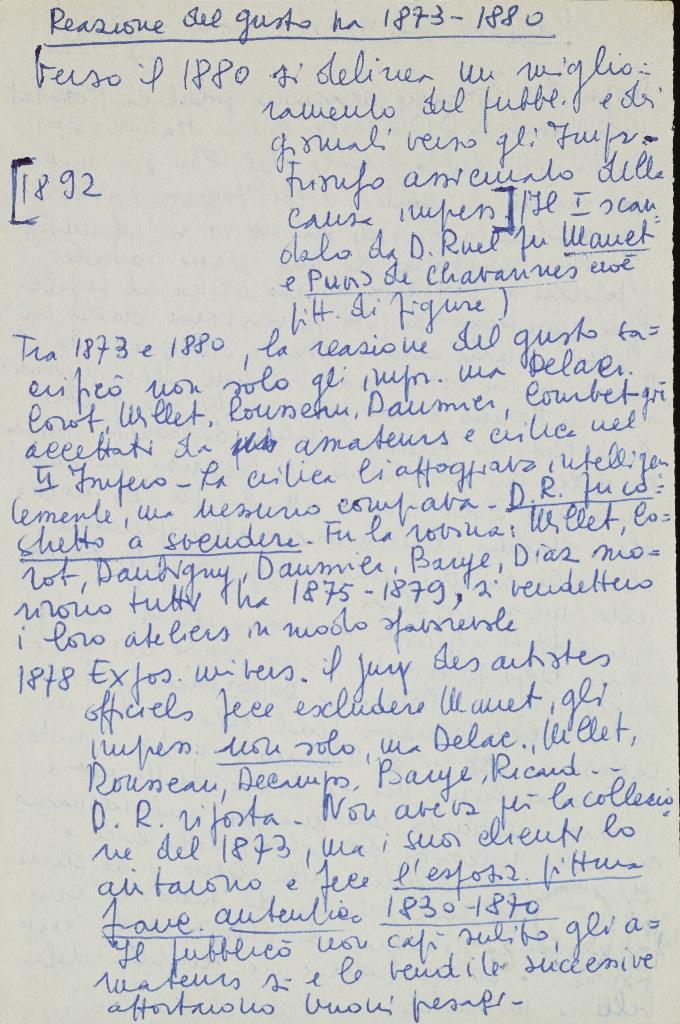 Reazione del gusto tra 1873-1880
Verso il 1880 si delinea un miglio=
ramento del pubbl. e dei
giornali verso gli Impr.-
[1892 Trionfo assicurato della
causa impress.] (Il I scan-
dalo da D. Ruel fu Manet
e Puvis de Chavannes cioè
pitt. di figure)
Tra 1873 e 1880, la reazione del gusto sa=
crificò non solo gli impr. ma Delacr.
Corot, Millet, Rousseau, Daumier, Courbet già
accettati da amateurs e critica nel
II Impero - La critica li appoggiava intelligen
temente, ma nessuno comprava - D.R. fu co=
stretto a svendere. Fu la rovina: Millet, Co=
rot, Daubigny, Daumier, Barye, Diaz mo=
rirono tutti tra 1875-1879, si vendettero
i loro ateliers in modo sfavorevole
1878 Expos. univers. il jury des artistes
officiels fece escludere Manet, gli
impress non solo, ma Delac., Millet,
Rousseau, Decamps, Barye, Ricard - -
D. R. riposta - Non aveva più la collezio
ne del 1873, ma i suoi clienti lo
aiutarono e fece l'esposiz. pittura
franc. autentica 1830-1870
Il pubblico non capì subito, gli a=
mateurs si e le vendite successive
apportarono buoni presagi -